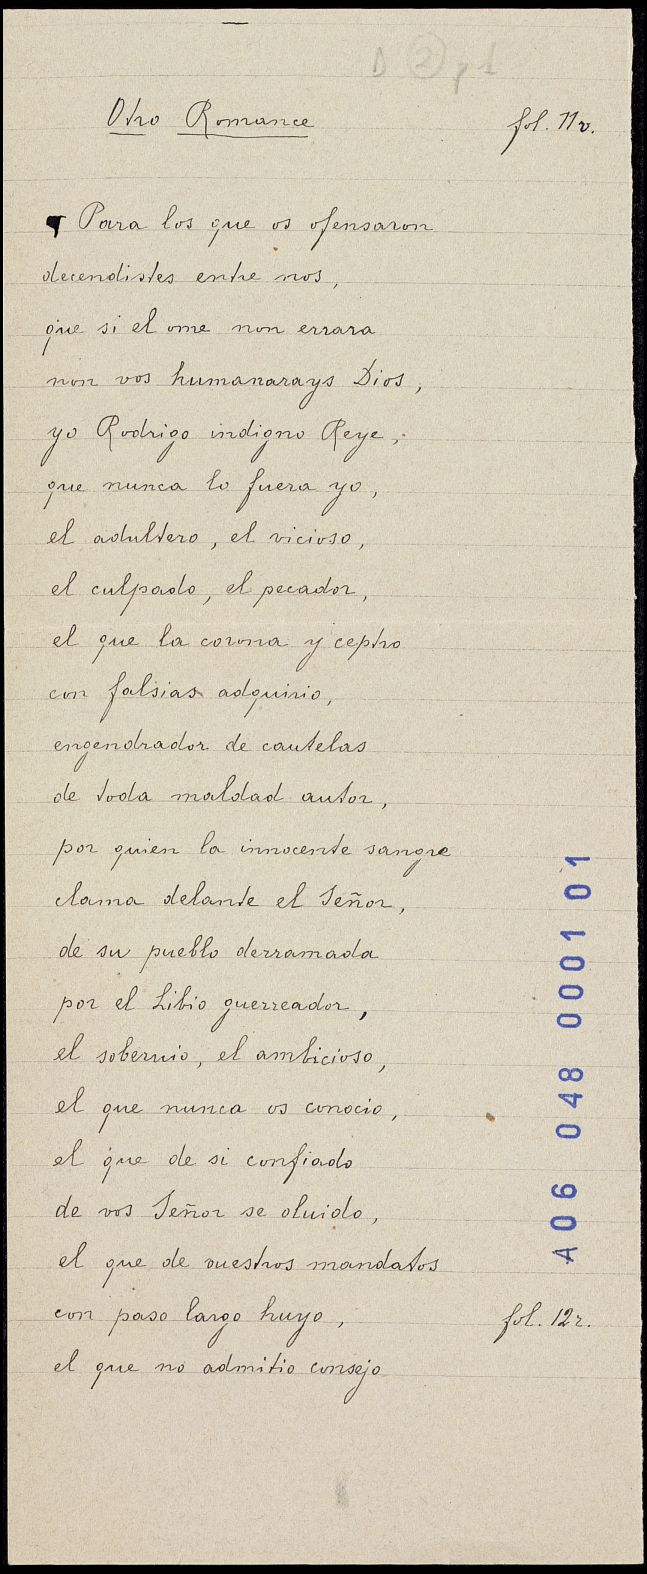 D 2 p 1
Otro Romance fol. 11v.
¶ Para los que os ofensaron
decendistes entre nos,
que si el ome non errara
non vos humanarays Dios,
yo Rodrigo indigno Reye,
que nunca lo fuera yo,
el adultero, el vicioso,
el culpado, el pecador,
el que la corona y ceptro
con falsias adquirio,
engendrador de cautelas
de toda maldad autor,
por quien la innocente sangre
clama delante el Señor,
de su pueblo derramada
por el Libio guerreador,
el soberuio, el ambicioso,
el que nunca os conocio,
el que de si confiado
de vos Señor se oluido,
el que de vuestros mandatos
con paso largo huyo, fol. 12r.
el que no admitio consejo
A06 048 0001 01